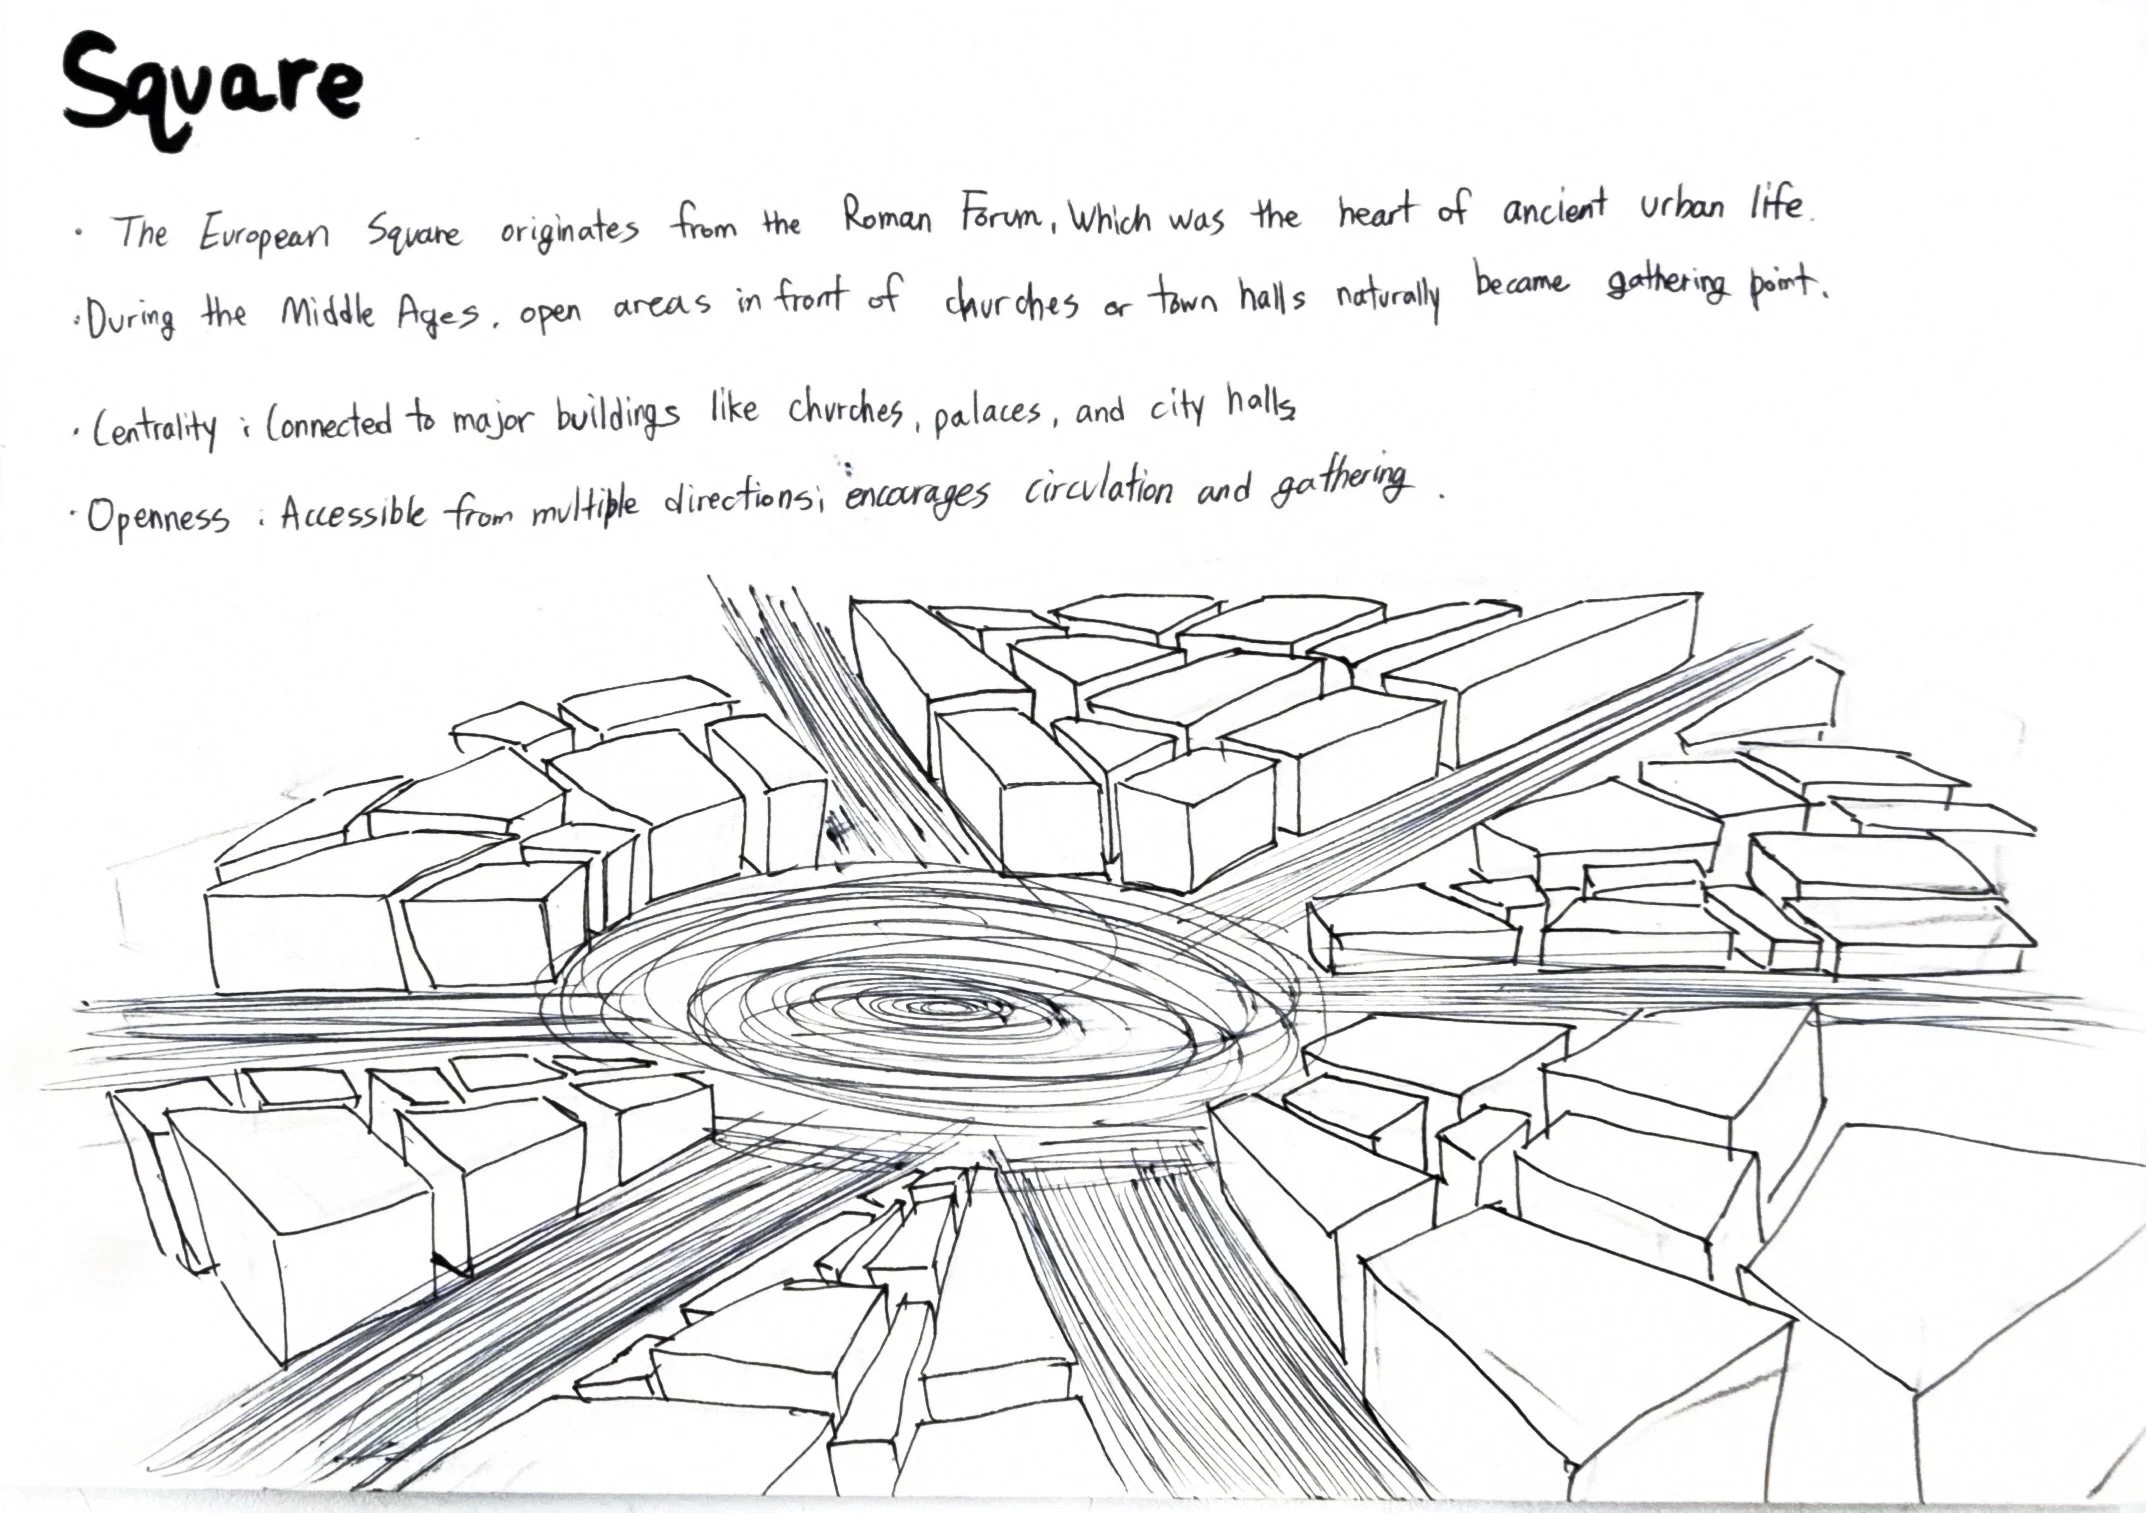 Square
· The European Square originates from the Roman Forum, Which was the heart of ancient urban life.
· During the Middle Ages, open areas in front of churches or town halls naturally became gathering point.
· Centrality : Connected to major buildings like churches, palaces, and city halls
· Openness : Accessible from multiple directions; encourages circulation and gathering.